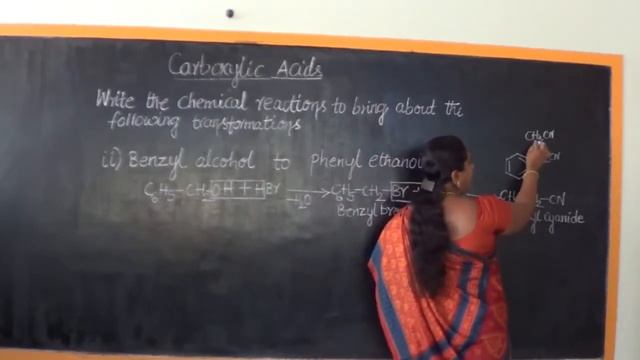 Carboxylic Acids
Write the chemical reactions to bring about the
following transformations
ii) Benzyl alcohol to phenyl
CH₂CN
CN
C₆H₅-CH₂OH + HBr -H₂O → C₆H₅-CH₂ Br
-CN
Benzyl
cyanide